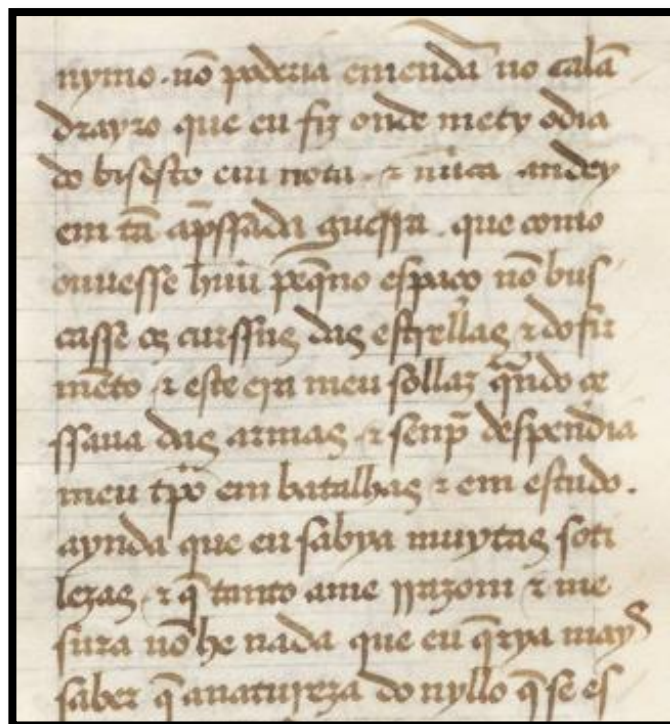 nymo. nõ poderia emendã no calã
drayro que eu fiz onde mety odia
do bisesto em nota. ⁊ nũca andey
em tã ap̃ssada guerra. que como
ouuesse huũ peq̃no espaço nõ bus
casse os curssus das estrellas ⁊ do fir
mẽto ⁊ este era meu sollaz q̃ndo ce
ssaua das armas ⁊ senp̃ despendia
meu tp̃o em batalhas ⁊ em estudo.
aynda que eu sabya muytas soti
lezas ⁊ q̃ tanto ame rrazom ⁊ me
sura nõ he nada que eu q̃rya mays
saber q̃ anatureza do nyllo q̃ se es